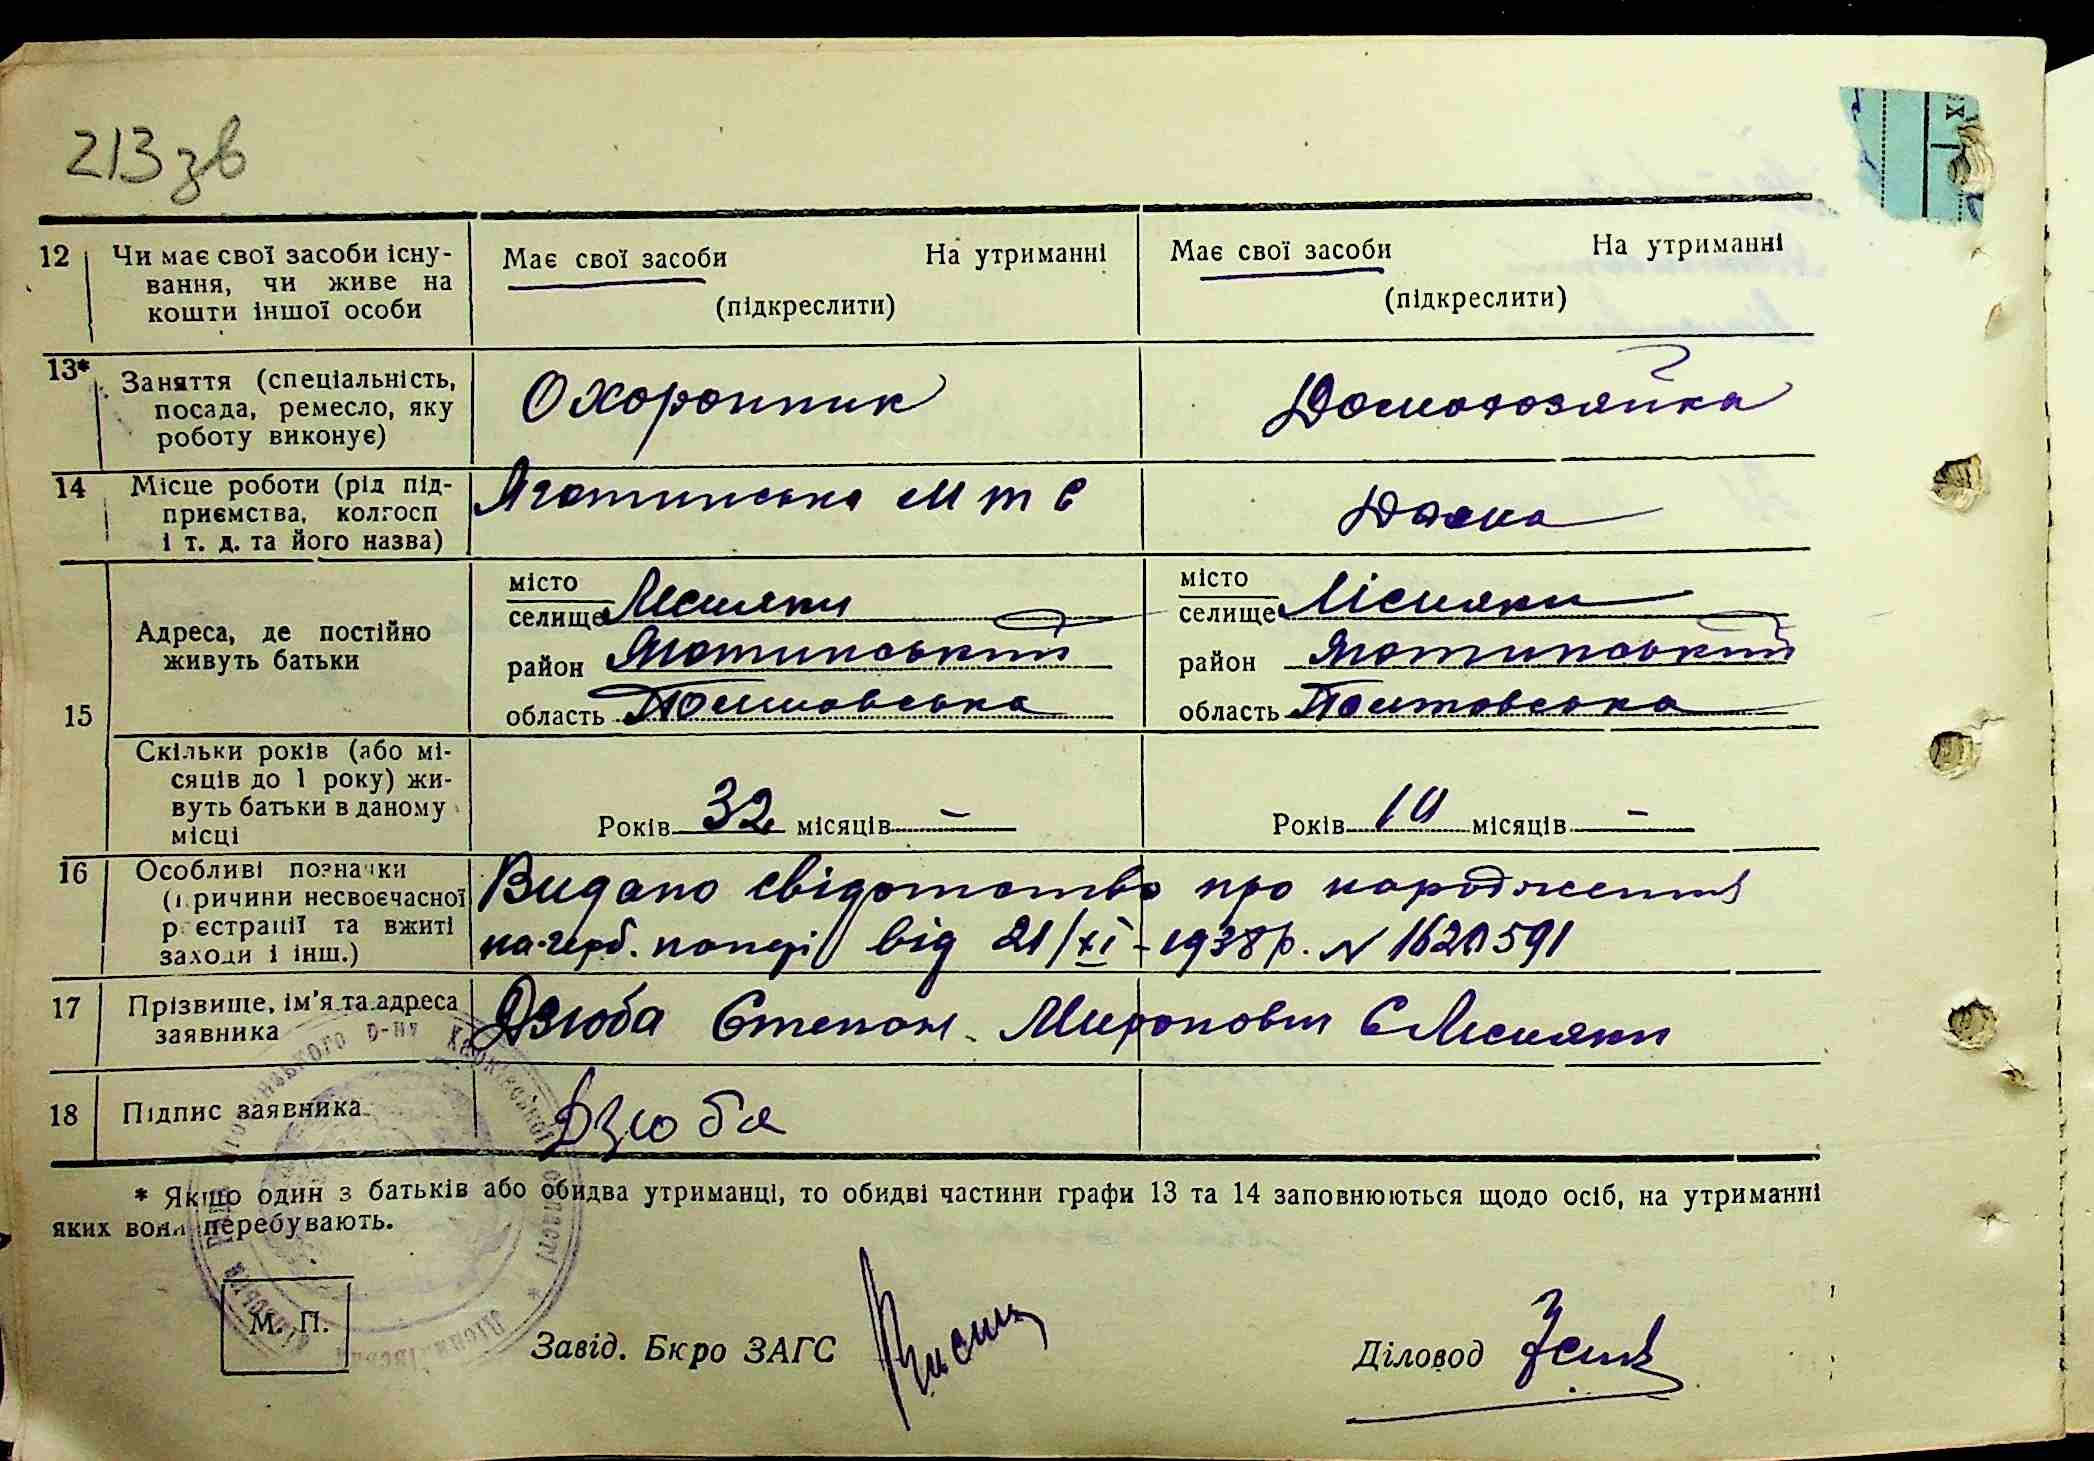 213 зв
12 Чи має свої засоби існу-
вання, чи живе на
кошти іншої особи
Має свої засоби На утриманні
(підкреслити)
Має свої засоби На утриманні
(підкреслити)
13* Заняття (спеціальність,
посада, ремесло, яку
роботу виконує)
Охоронник
Домохозяйка
14 Місце роботи (рід під-
приємства, колгосп
і т. д. та його назва)
Яготинська М Т С
Дома
15 Адреса, де постійно
живуть батьки
місто
селище Лісняки
район Яготинський
область Полтавська
місто
селище Лісняки
район Яготинський
область Полтовська
Скільки років (або мі-
сяців до 1 року) жи-
вуть батьки в даному
місці
Років 32 місяців –
Років 10 місяців –
16 Особливі позначки
(причини несвоєчасної
реєстрації та вжиті
заходи і інш.)
Видано свідотство про народження
на герб. папері від 21/XI-1938р. N 1620591
17 Прізвище, ім'я та адреса
заявника
Дзюба Степан Миронович С Лісняки
18 Підпис заявника
Дзюба
* Якщо один з батьків або обидва утриманці, то обидві частини графи 13 та 14 заповнюються щодо осіб, на утриманні
яких вони перебувають.
М. П.
Завід. Бюро ЗАГС
Діловод